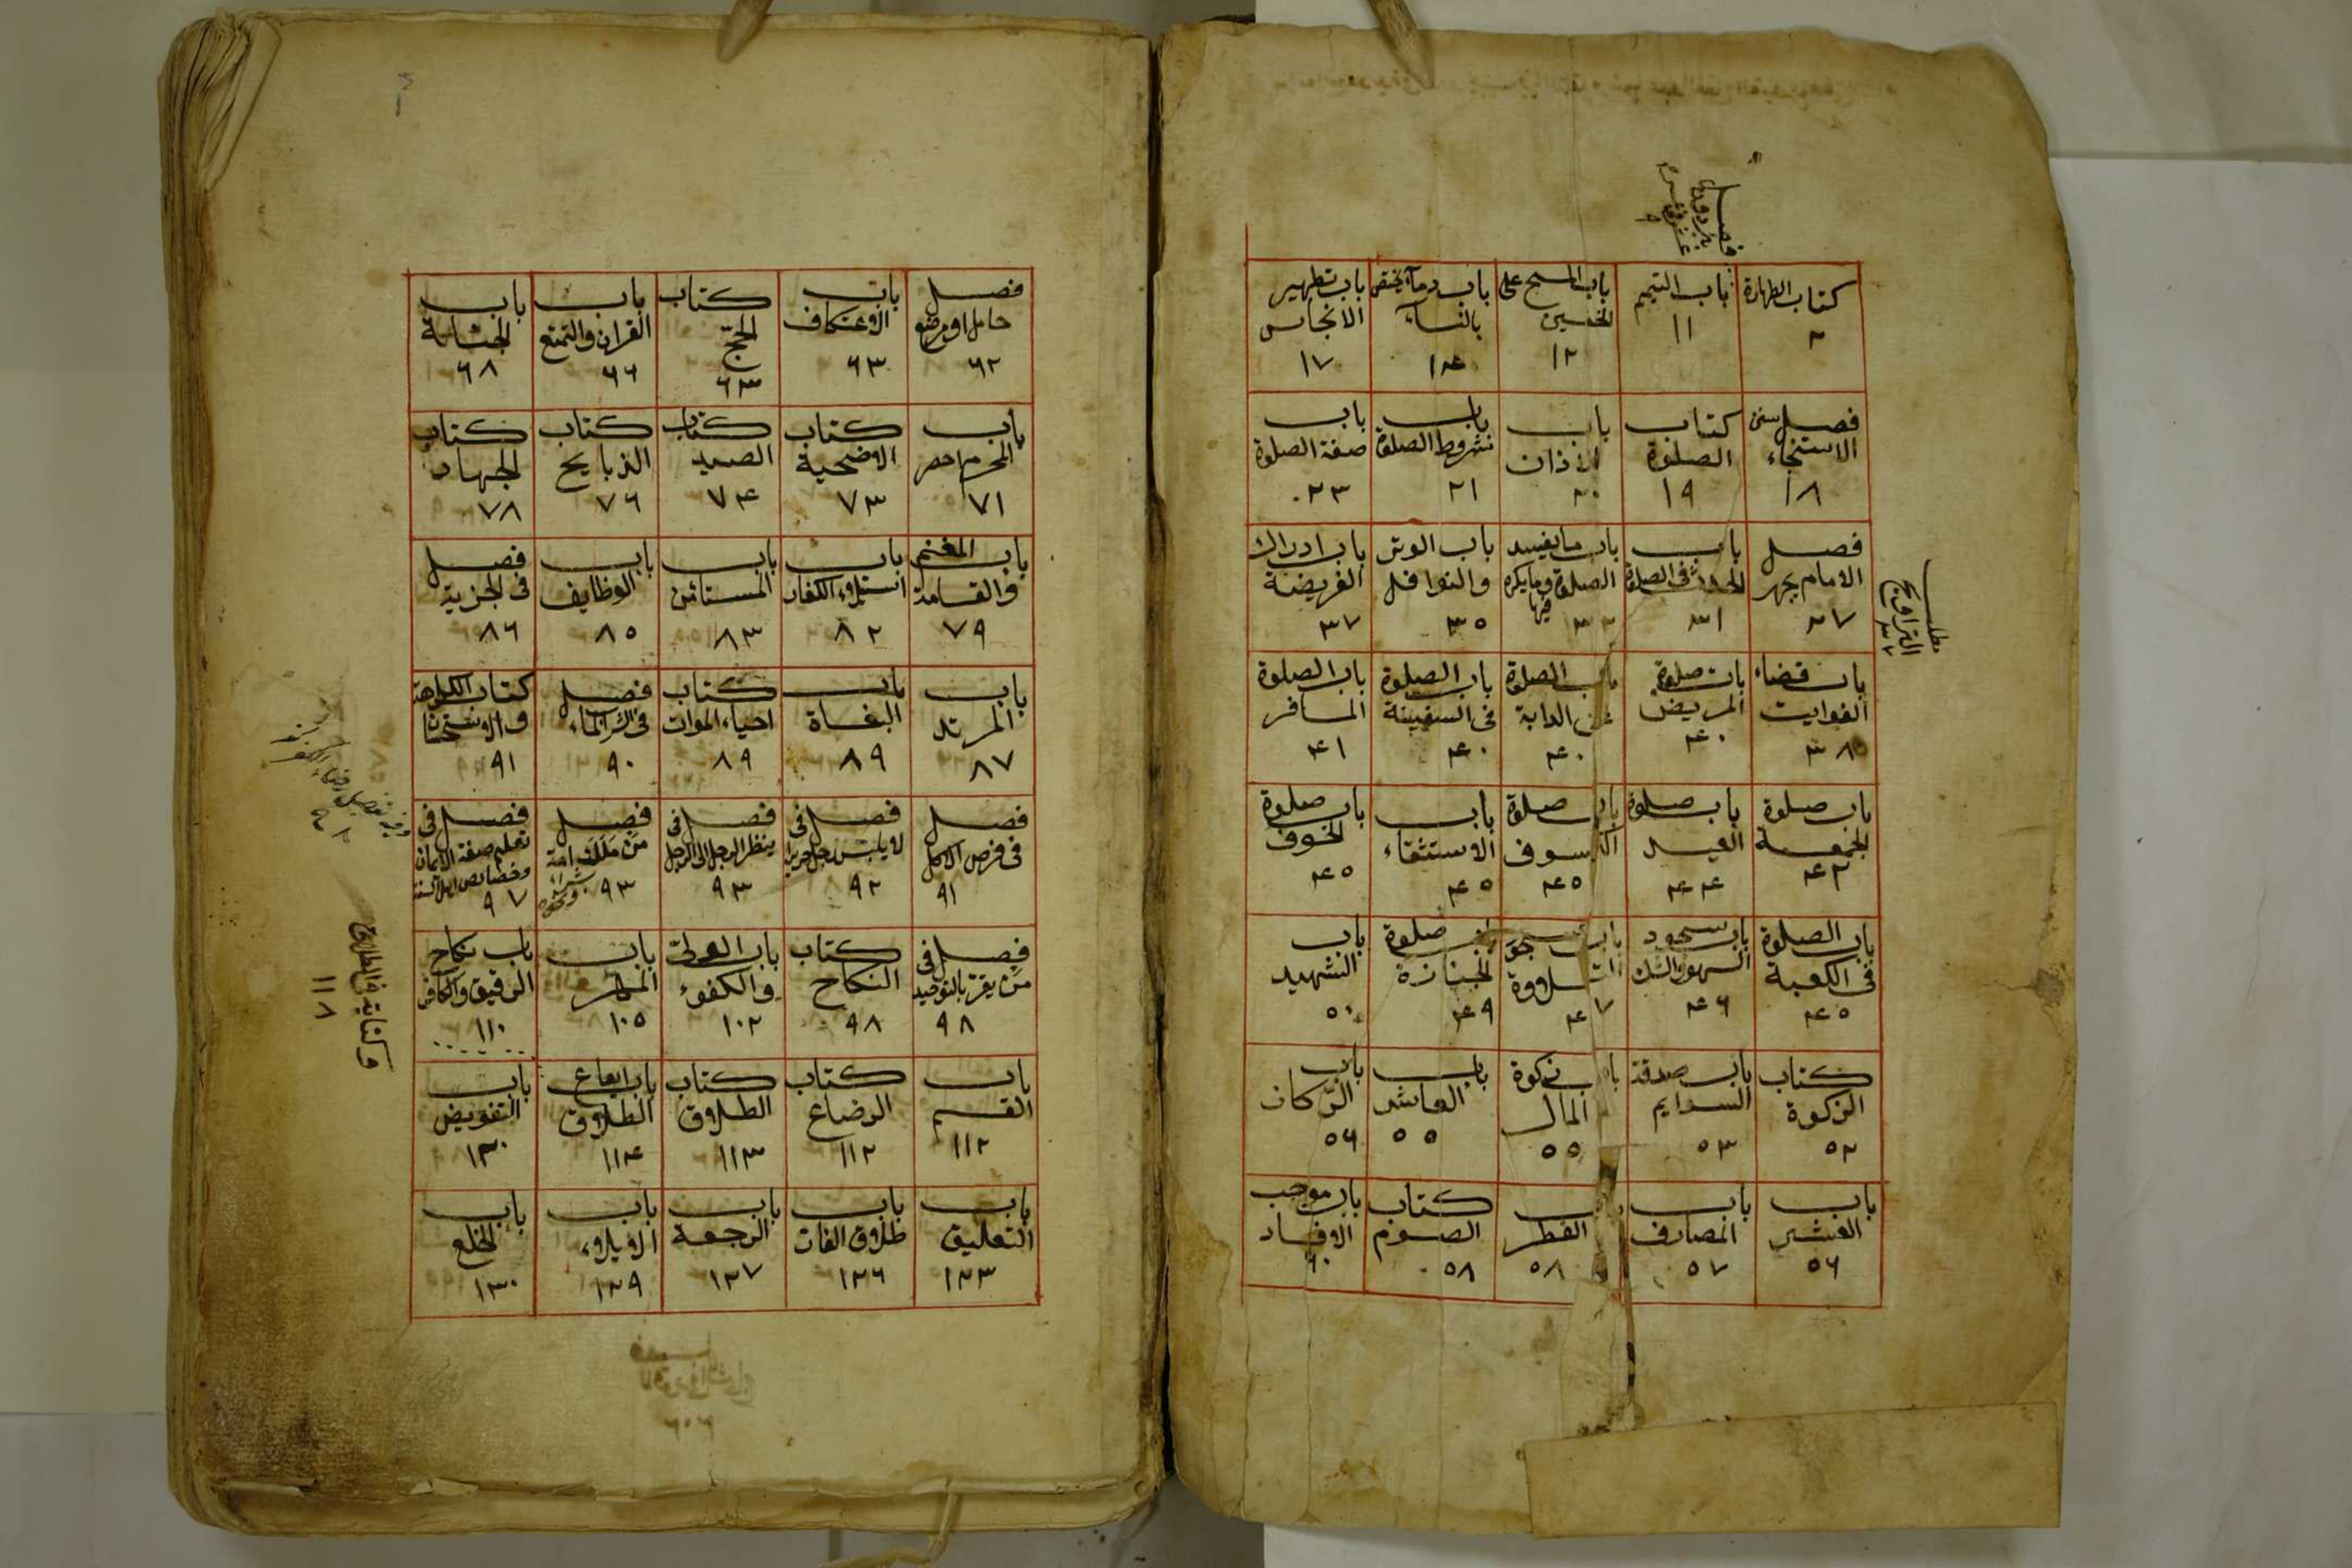 كتاب الطهارة
٢
باب التيمم
١١
باب المسح على
الخفين
١٢
باب دماء يختص
بالنساء
١٤
باب تطهير
الانجاس
١٧
فصل سنن
الاستنجاء
١٨
كتاب
الصلوة
١٩
باب
الاذان
٢٠
باب
شروط الصلوة
٢١
باب
صفة الصلوة
٢٣
فصل
الامام يجهر
٢٧
باب
الحدث فى الصلوة
٣١
باب ما يفسد
الصلوة وما يكره
فيها
٣٣
باب الوتر
والنوافل
٣٥
باب ادراك
الفريضة
٣٧
مطلب
التراويح
باب قضاء
الفوايت
٣٨
باب صلوة
المريض
٤٠
باب الصلوة
على الدابة
٤٠
باب الصلوة
فى السفينة
٤٠
باب الصلوة
المسافر
٤١
باب صلوة
الجمعة
٤٢
باب صلوة
العيد
٤٤
باب صلوة
الكسوف
٤٥
باب
الاستثقاء
٤٥
باب صلوة
الخوف
٤٥
باب الصلوة
فى الكعبة
٤٥
باب سجود
السهو والشك
٤٦
باب سجود
التلاوة
٤٧
باب صلوة
الجنازة
٤٩
باب
الشهيد
٥٠
كتاب
الزكوة
٥٢
باب صدقة
السوايم
٥٣
باب زكوة
المال
٥٥
باب
العاشر
٥٥
باب
الركاز
٥٦
باب
العشر
٥٦
باب
المصارف
٥٧
الفطر
٥٨
كتاب
الصوم
٥٨
باب موجب
الافساد
٦٠
فصل
حامل او مرضع
٦٢
باب
الاعتكاف
٦٣
كتاب
الحج
٦٣
باب
القران والتمتع
٦٦
باب
الجناية
٦٨
باب
المحرم احصر
٧١
كتاب
الاضحية
٧٣
كتاب
الصيد
٧٤
كتاب
الذبايح
٧٦
كتاب
الجهاد
٧٨
باب المغنم
والقسامة
٧٩
باب
استيلاء الكفار
٨٢
باب
المستأمن
٨٣
باب
الوظايف
٨٥
فصل
فى الجزية
٨٦
باب
المرتد
٨٧
باب
البغاة
٨٩
كتاب
احياء الموات
٨٩
فصل
فى شرب الماء
٩٠
كتاب الكراهة
والاستحسان
٩١
فصل
فى فرض الاكل
٩١
فصل فى
لا يلبس رجل حريرا
٩٢
فصل فى
ينظر الرجل الى الرجل
٩٣
فصل
من ملك امة
بشراء
ونحوه
٩٣
فصل فى
تعليم صفة الايمان
وخصايص اهل السنة
٩٧
فصل فى
من يقر بالتوحيد
٩٨
كتاب
النكاح
٩٨
باب الولى
والكفوء
١٠٢
باب
المهر
١٠٥
باب نكاح
الرقيق والكافر
١١٠
باب
القسم
١١٢
كتاب
الرضاع
١١٢
كتاب
الطلاق
١١٣
باب ايقاع
الطلاق
١١٤
باب
التفويض
١٢٠
وكناية فى الطلاق
١١٨
باب
التعليق
١٢٣
باب
طلاق الفار
١٢٦
باب
الرجعة
١٢٧
باب
الايلاء
١٢٩
باب
الخلع
١٣٠